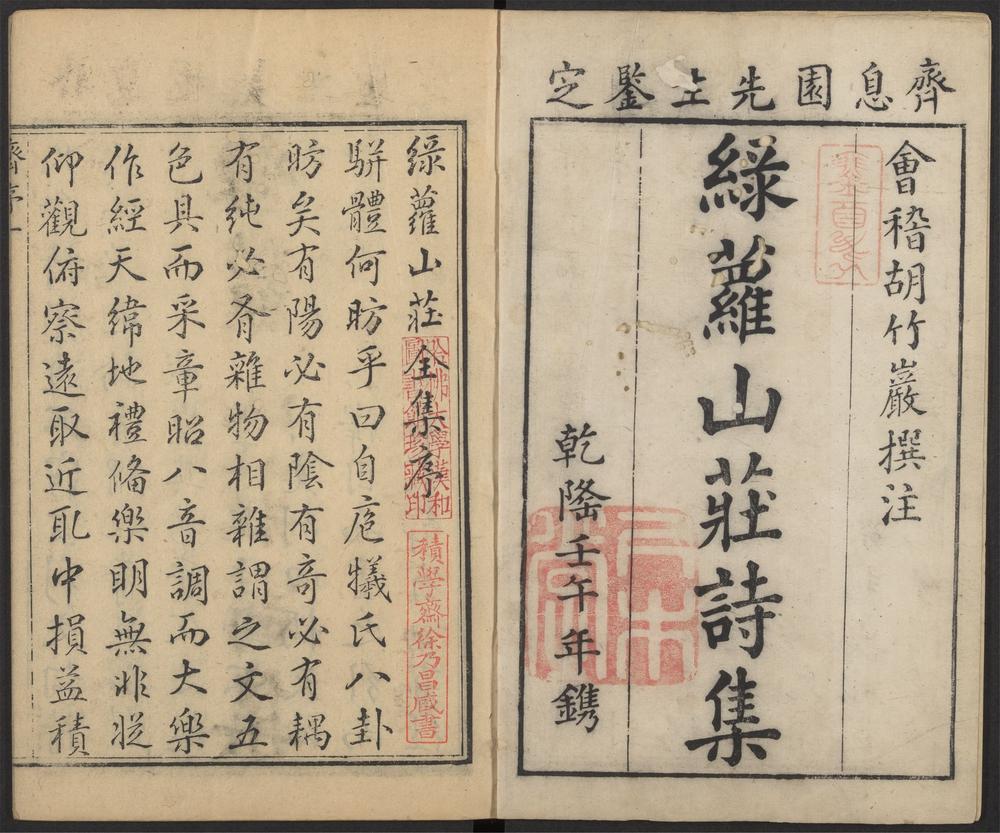 齊息園先生鑒定
會稽胡竹巖撰注
綠蘿山莊詩集
乾隆壬午年鐫
綠蘿山莊全集序
哈佛大學漢和
圖書館珍藏印
積學齋徐乃昌藏書
駢體何昉乎曰自庖犧氏八卦
昉矣有陽必有陰有奇必有耦
有純必有雜物相雜謂之文五
色具而采章昭八音調而大樂
作經天緯地禮備樂明無非從
仰觀俯察遠取近取中損益積
齊序一